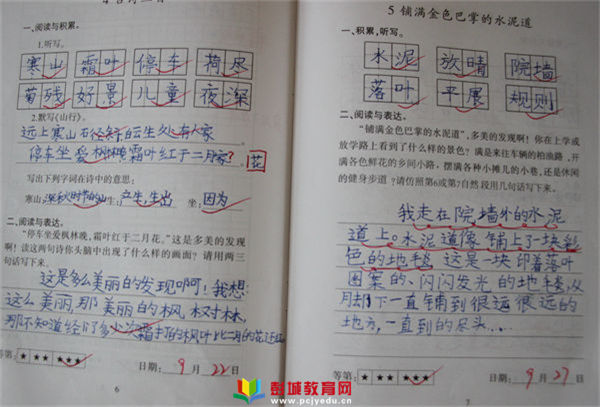 一、阅读与积累。
1.听写。
寒山 霜叶 停车 荷尽
菊残 好景 儿童 夜深
2.默写《山行》。
远上寒山石径斜白云生处有人家
停车坐爱枫林晚霜叶红于二月家? 花
写出下列字词在诗中的意思:
寒山:深秋时节的山 生:产生,生出 坐:因为
二、阅读与表达。
“停车坐爱枫林晚,霜叶红于二月花。”这是多美的发现
啊!读这两句诗你头脑中出现了什么样的画面?请用两三
句话写下来。
这是多么美丽的发现啊!我想:
这么美丽,那美丽的枫树林,
那不知道经了多少次霜打的枫叶比二月的花还红
等第: ★ ★★ ★★★ 日期: 9 月 22 日
6
5 铺满金色巴掌的水泥道
一、积累,听写。
水泥 放晴 院墙
落叶 平展 规则
二、阅读与表达。
“铺满金色巴掌的水泥道”,多美的发现啊!你在上学或
放学路上看到了什么样的景色?满是来往车辆的柏油路,开
满各色鲜花的乡间小路,摆满各种小摊儿的小巷,还是休闲
的健身步道?请仿照第6或第7自然段用几句话写下来。
我走在院墙外的水泥
道上。水泥道像铺上了一块彩
色的地毯。这是一块印着落叶
图案的、闪闪发光的地毯,从
脚下一直铺到很远很远的
地方,一直到的尽头……
等第: ★ ★★ ★★★ 日期: 9 月 27 日
7
彭城教育网
www.pcjyedu.cn